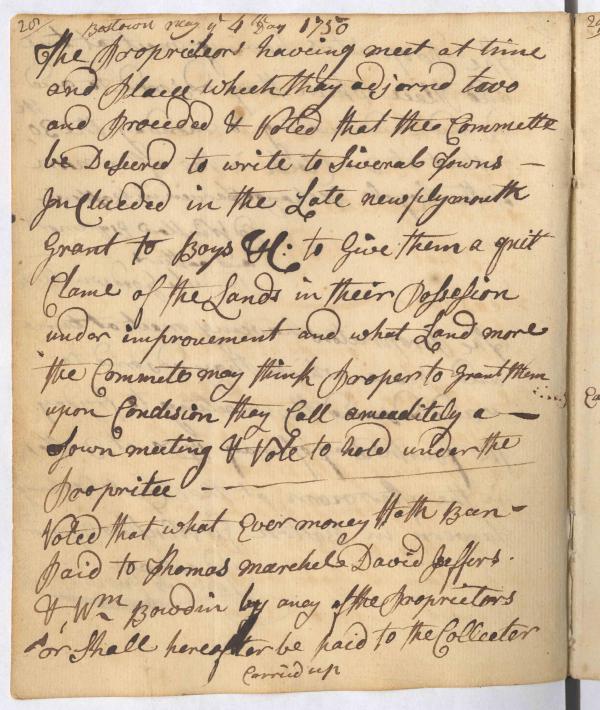 208 Bostown may ye 4th Day 1750
The Proprieteors haveing meet at time
and Place which thay adjornd two
and Proceded & Voted that the Committe
be Desiered to write to Siveral Towns
In Clueded in the Late newplymouth
Grant to Boys &C: to Give them a quit
Clame of the Lands in their Possesion
under improvement and what Land more
the Commete may think Proper to Grant them
upon Condision they Call ameaditely a
Town meeting & Vote to hold under the
Propritee
Voted that what Ever money Hath Ban
Paid to Thomas marchel David Jeffers
& Wm Bowdin by aney of the Proprietors
or Shall hereafter be paid to the Colliceter
Carried up